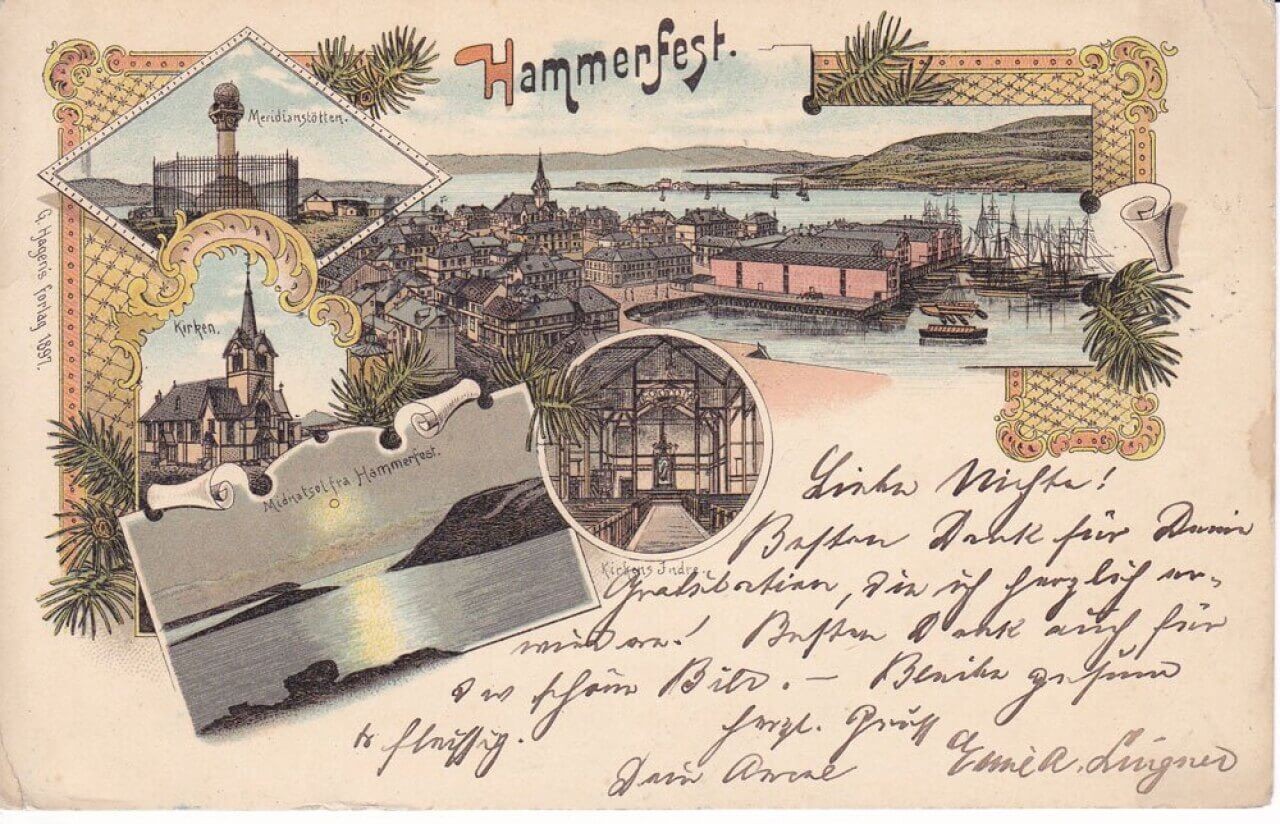 Hammerfest.
Meridianstötten.
G. Hagens forlag 1897.
Kirken.
Midnatsol fra Hammerfest.
Kirkens Indre.
Liebe Nichte!
Besten Dank für Deine
Gratulation, die ich herzlich er-
widere! Besten Dank auch für
das schöne Bild. — Bleibe gesund
& fleissig. herzl. Gruss
Dein Onkel Emil A. Lingner